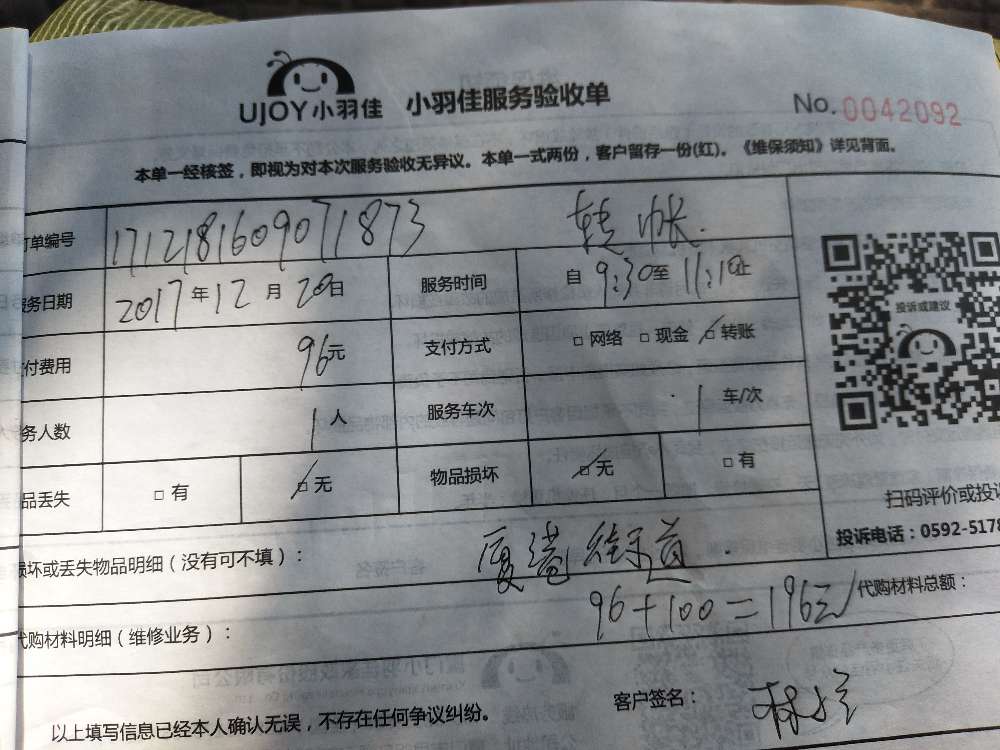 UJOY小羽佳 小羽佳服务验收单 No.0042092
本单一经核签，即视为对本次服务验收无异议。本单一式两份，客户留存一份(红)。《维保须知》详见背面。
订单编号 1712181609071873 转帐.
服务日期 2017年12月20日 服务时间 自9:30至11:10止
付费用 96元 支付方式 □ 网络 □ 现金 □ 转账
务人数 1人 服务车次 1 车/次
品丢失 □ 有 □ 无 物品损坏 □ 无 □ 有
投诉或建议
扫码评价或投诉
投诉电话：0592-5178
损坏或丢失物品明细（没有可不填）： 厦港街道.
96+100=196元 代购材料总额：
代购材料明细（维修业务）：
客户签名：
以上填写信息已经本人确认无误，不存在任何争议纠纷。